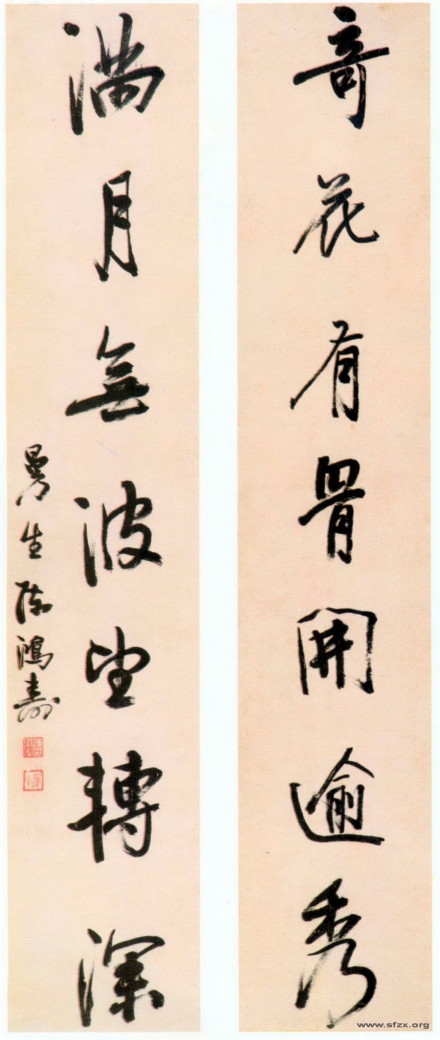 奇花有骨開逾秀
滿月無波望轉深
曼生陳鴻壽
www.sfzx.org